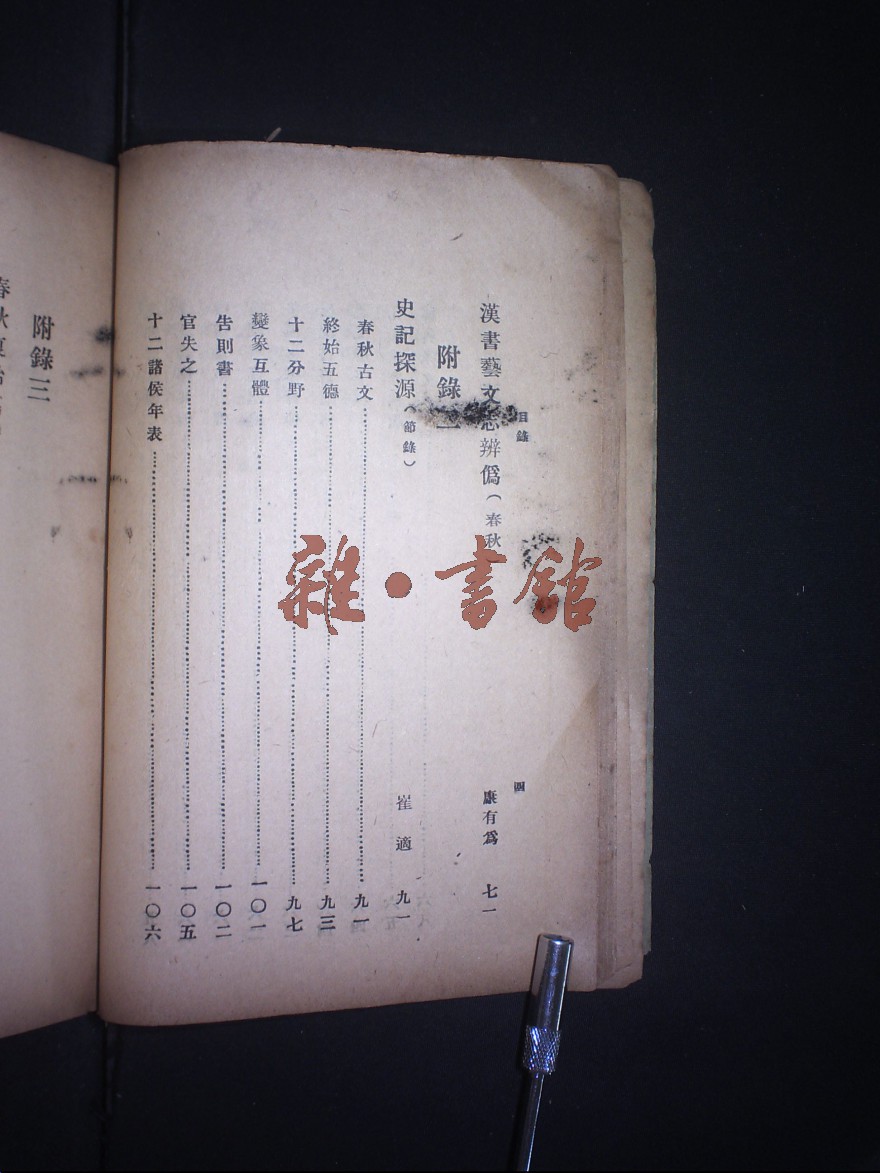 目錄
四
漢書藝文志辨僞（春秋
康有爲 七一
附錄二
史記探源（節錄） 崔適 九一
春秋古文……九一
終始五德……九三
十二分野……九七
變象互體……一〇一
告則書……一〇二
官失之……一〇五
十二諸侯年表……一〇六
附錄三
春秋
雜·書館